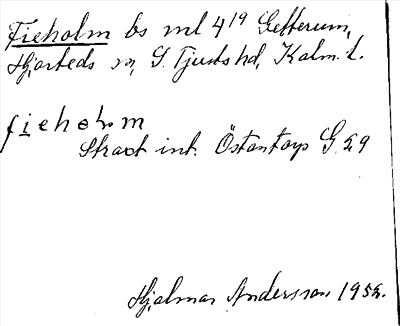 Fieholm bs ml 4¹⁹ Getterum,
Hjorteds sn, S. Tjusts hd, Kalm. l.
fieholm
Straxt int. Östantorp G. 29
Hjalmar Andersson 1952.